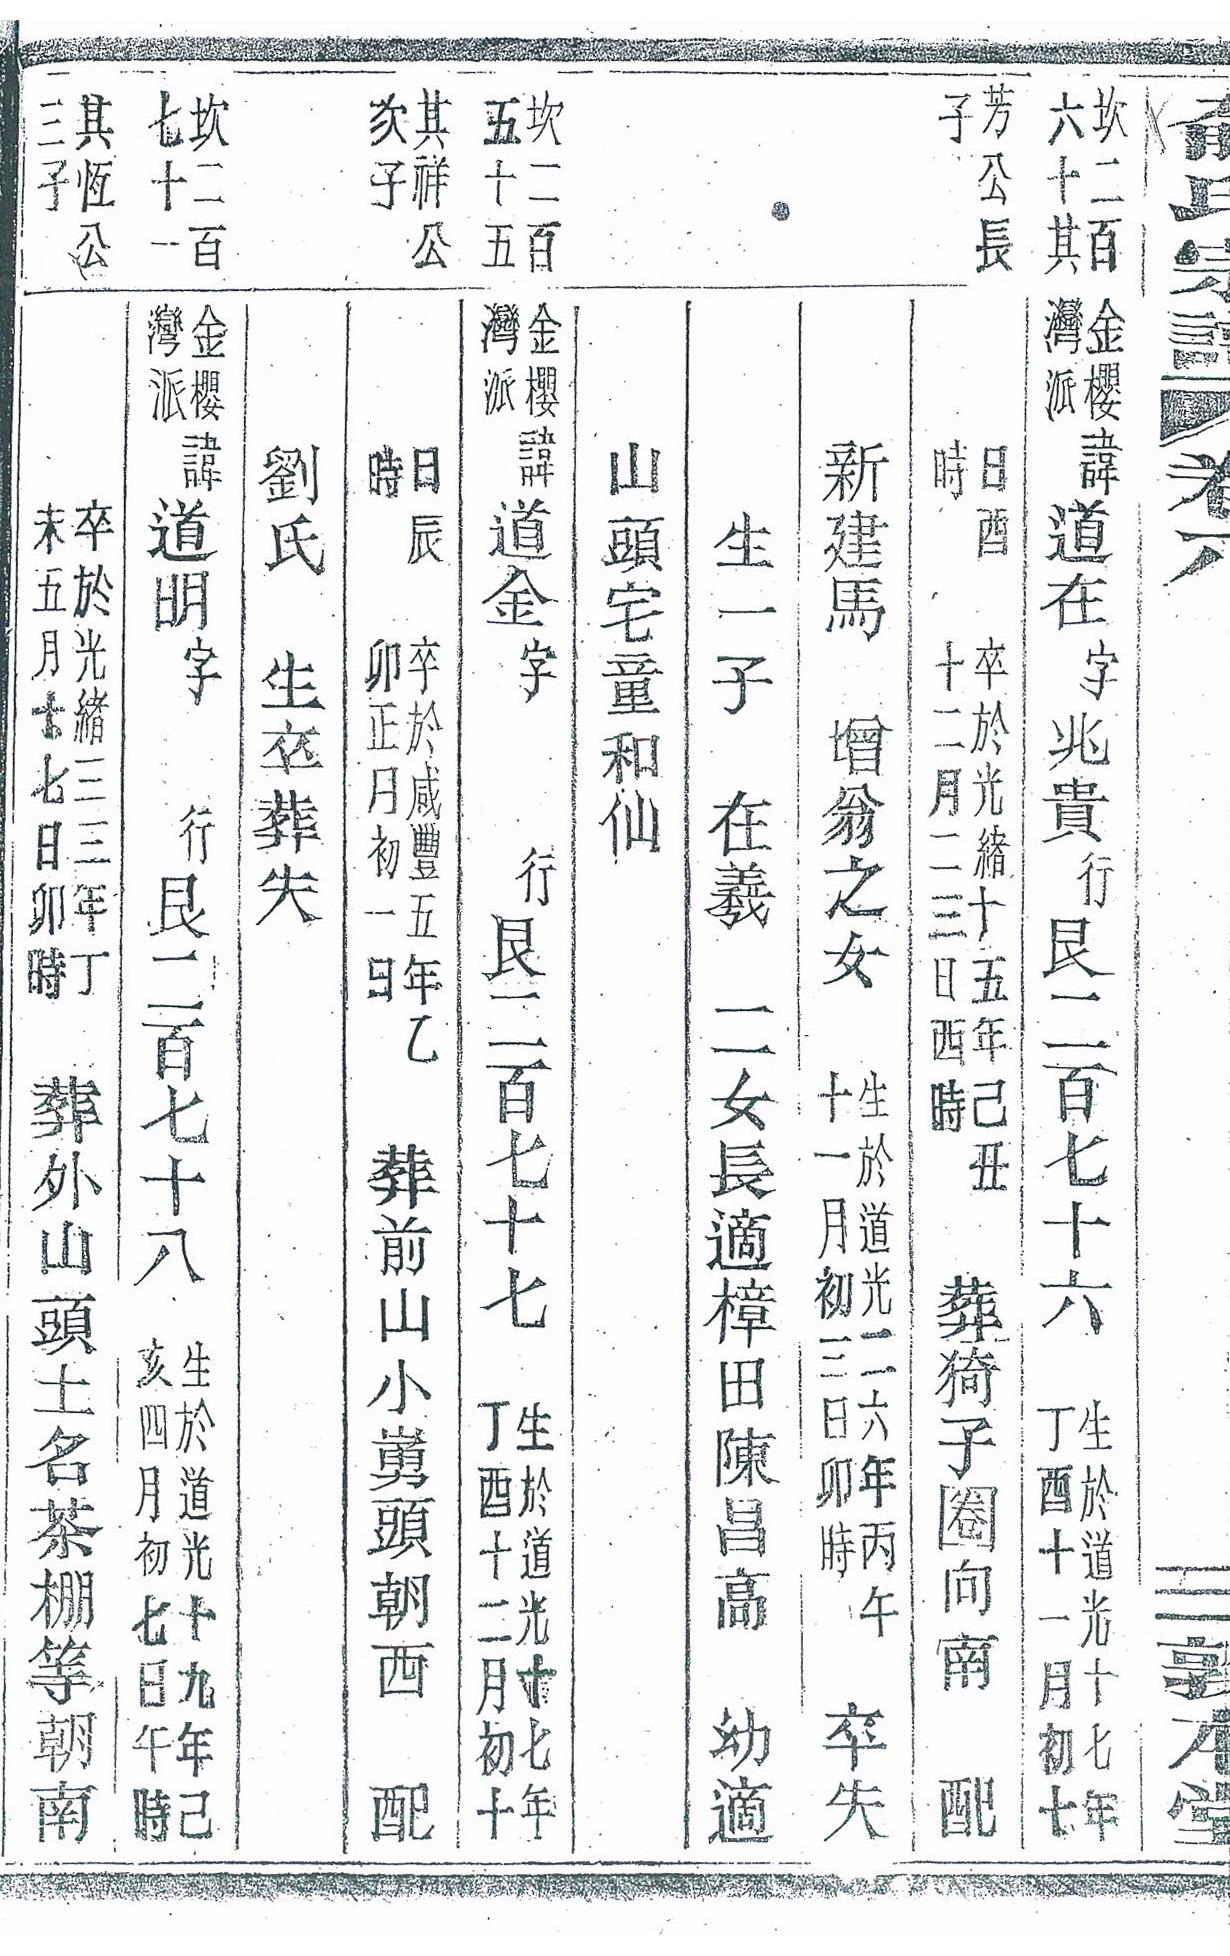 俞氏宗譜 卷八 敦本堂
坎二百六十其
金櫻灣派 諱道在 字兆貴 行艮二百七十六 生於道光十七年丁酉十一月初七
芳公長子
日酉時 卒於光緒十五年己丑十二月二三日酉時 葬猗子圈向南 配
新建馬 增翁之女 生於道光二六年丙午十一月初三日卯時 卒失
生一子 在義 二女長適樟田陳昌高 幼適
山頭宅童和仙
坎二百五十五
金櫻灣派 諱道金 字 行艮二百七十七 生於道光十七年丁酉十二月初十
其祥公次子
日辰時 卒於咸豐五年乙卯正月初一日 葬前山小嶲頭朝西 配
劉氏 生卒葬失
坎二百七十一
金櫻灣派 諱道明 字 行艮二百七十八 生於道光十九年己亥四月初七日午時
其恆公三子
卒於光緒三三年丁未五月十七日卯時 葬外山頭土名茶棚等朝南